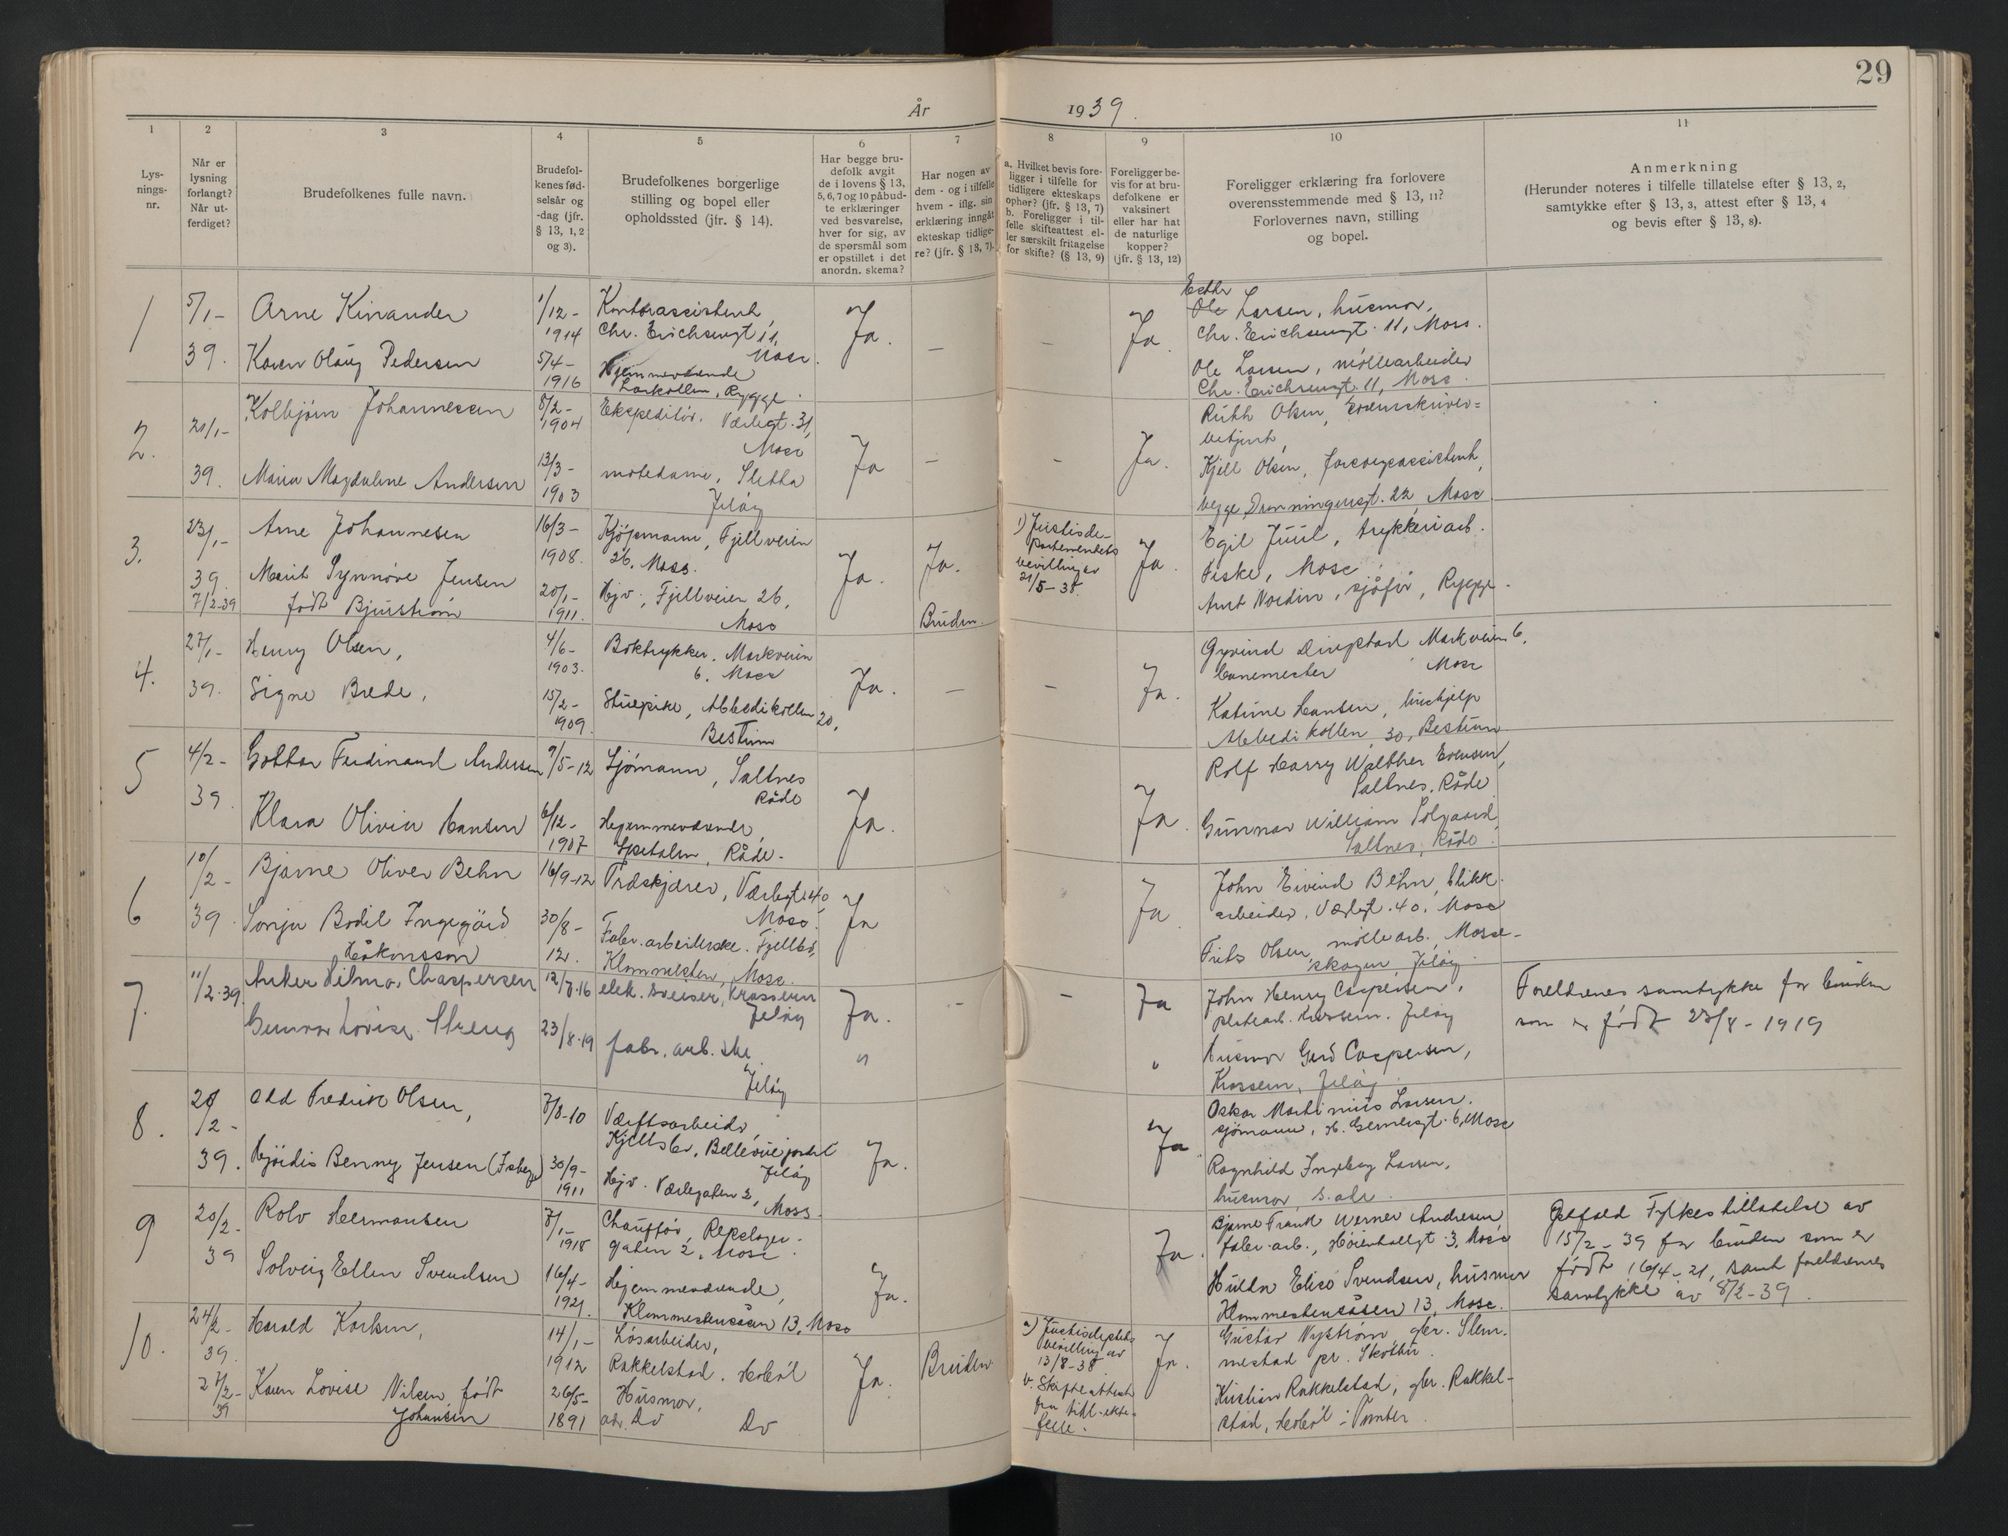 29
År 1939.
1
2
3
4
5
6
7
8
9
10
11
Lys-
nings-
nr.
Når er
lysning
forlangt?
Når ut-
ferdiget?
Brudefolkenes fulle navn.
Brudefol-
kenes fød-
selsår og
-dag (jfr.
§ 13, 1, 2
og 3).
Brudefolkenes borgerlige
stilling og bopel eller
opholdssted (jfr. § 14).
Har begge bru-
defolk avgit
de i lovens § 13,
5, 6, 7 og 10 påbud-
te erklæringer
ved besvarelse,
hver for sig, av
de spørsmål som
er opstillet i det
anordn. skema?
Har nogen av
dem - og i tilfelle
hvem - iflg. sin
erklæring inngått
ekteskap tidlige-
re? (jfr. § 13, 7).
a. Hvilket bevis fore-
ligger i tilfelle for
tidligere ekteskaps
ophør? (jfr. § 13, 7)
b. Foreligger i til-
felle skifteattest el-
ler særskilt fritagelse
for skifte? (§ 13, 9)
Foreligger be-
vis for at bru-
defolkene er
vaksinert
eller har hat
de naturlige
kopper?
(jfr. § 13, 12)
Foreligger erklæring fra forlovere
overensstemmende med § 13, 11?
Forlovernes navn, stilling
og bopel.
Anmerkning
(Herunder noteres i tilfelle tillatelse efter § 13, 2,
samtykke efter § 13, 3, attest efter § 13, 4
og bevis efter § 13, 8).
1
5/1-
39.
Arne Kinander
Karen Olaug Pedersen
1/12-
1914
5/4-
1916
Kontorassistent,
Chr. Erichsensgt 11,
Moss.
Hjemmeværende
Larkollen, Rygge.
Ja.
-
-
Ja.
Ole Larsen, husmor,
Chr. Erichsensgt. 11, Moss.
Ole Larsen, møllearbeider
Chr. Erichsensgt. 11, Moss.
2.
21/1-
39.
Kolbjørn Johannessen
Maria Magdalene Andersen
8/2-
1904
13/3-
1903
Ekspeditør. Værlegt. 31,
Moss
motedame, Sletta
Jeløy
Ja
-
-
Ja.
Ruth Olsen,
betjent,
Kjell Olsen,
begge Dronningensgt. 22, Moss.
3.
23/1-
39.
7/2-39
Arne Johannesen
Marit Synnøve Jensen
født Bjurstrøm
16/3-
1908.
20/1-
1911.
Kjøpmann, Fjellveien
26, Moss.
Hjv., Fjellveien 26,
Moss
Ja.
Ja.
Bruden.
1) Justisde-
partementets
bevilling av
21/5-38.
Ja.
Egil Juul, trykkeriarb.
Moss
Arnt Nordin, sjåfør, Rygge.
4.
27/1-
39.
Henry Olsen,
Signe Brede,
4/6-
1903.
15/2-
1909.
Boktrykker, Markveien
6, Moss
Stuepike, Abbedikollen 20,
Bestum
Ja.
-
-
Ja.
Markveien 6,
banemester Moss
Katrine Hansen, hushjelp
Abbedikollen 30, Bestum
5
4/2-
39.
Gotthar Ferdinand Andersen
Klara Olivia Hansen
9/5-12
6/12-
1907
Sjømann, Saltnes
Råde
Hjemmeværende,
Spetalen, Råde.
Ja.
Ja.
Rolf Harry Walther Evensen,
Saltnes, Råde
Gunnar William Solgaard,
Saltnes, Råde.
6
10/2-
39.
Bjarne Oliver Behn
Sonja Bodil Ingegjärd
Håkonsson
16/9-12
30/8-
12.
Træskjærer, Værlegt. 40,
Moss.
Fabr. arbeiderske. Fjellbo,
Klommesten, Moss.
Ja
Ja
John Eivind Behn, blikk-
arbeider. Værlegt. 40, Moss
Frits Olsen, møllearb., Mosse-
skogen, Jeløy.
7.
11/2-39
Anker Hilmar Chaspersen
Gunvor Lovise Streng
12/7-16
23/8-19
elek. sveiser, Krossern
Jeløy
fabr. arb. ske.
Jeløy
Ja.
"
-
-
Ja
"
John Henry Caspersen,
platearb. Krossern. Jeløy
Husmor Gerd Caspersen,
Krossern, Jeløy.
Foreldrenes samtykke for bruden
som er født 23/8-1919
8.
20/2-
39.
Odd Fredrik Olsen,
Hjørdis Benny Jensen (Isberg)
7/8-10
30/9-
1911
Værftsarbeider,
Kjellsbo, Bellevuejordet
Jeløy
Hjv. Værlegaten 2,
Moss.
Ja.
Ja.
Oskar Martinius Larsen.
sjømann, H. Gernersgt. 6, Moss
Ragnhild Ingeborg Larsen,
husmor, s. adr.
9
20/2-
39
Rolv Hermansen
Solveig Ellen Svendsen
7/1-
1918
16/4-
1921.
Chauffør, Repslager-
gaten 2, Moss.
Hjemmeværende,
Klommestensåsen 13, Moss
Ja.
Ja.
Bjarne Frank Werner Andresen
fabr. arb., Høienhallgt. 3, Moss
Hulda Elise Svendsen, husmor
Klommestensåsen 13, Moss.
Østfold Fylkes tillatelse av
15/2-39 for bruden som er
født 16/4-21, samt foreldrenes
samtykke av 8/2-39.
10.
24/2-
39.
27/2-
39
Harald Karlsen,
Karen Lovise Nilsen, født
Johansen
14/1-
1912
26/5-
1891
Løsarbeider,
Rakkelstad, Hobøl
Husmor,
adr. Do Do
Ja.
Bruden
a) Justisdeptets
bevilling av
13/8-38
b. Skifteattest
fra tidl. ekte-
felle.
Ja.
Gustav Nystrøm, gbr. Slem-
mestad pr. Skotbu.
Kristian Rakkelstad, gbr. Rakkel-
stad, Hobøl i Tomter.